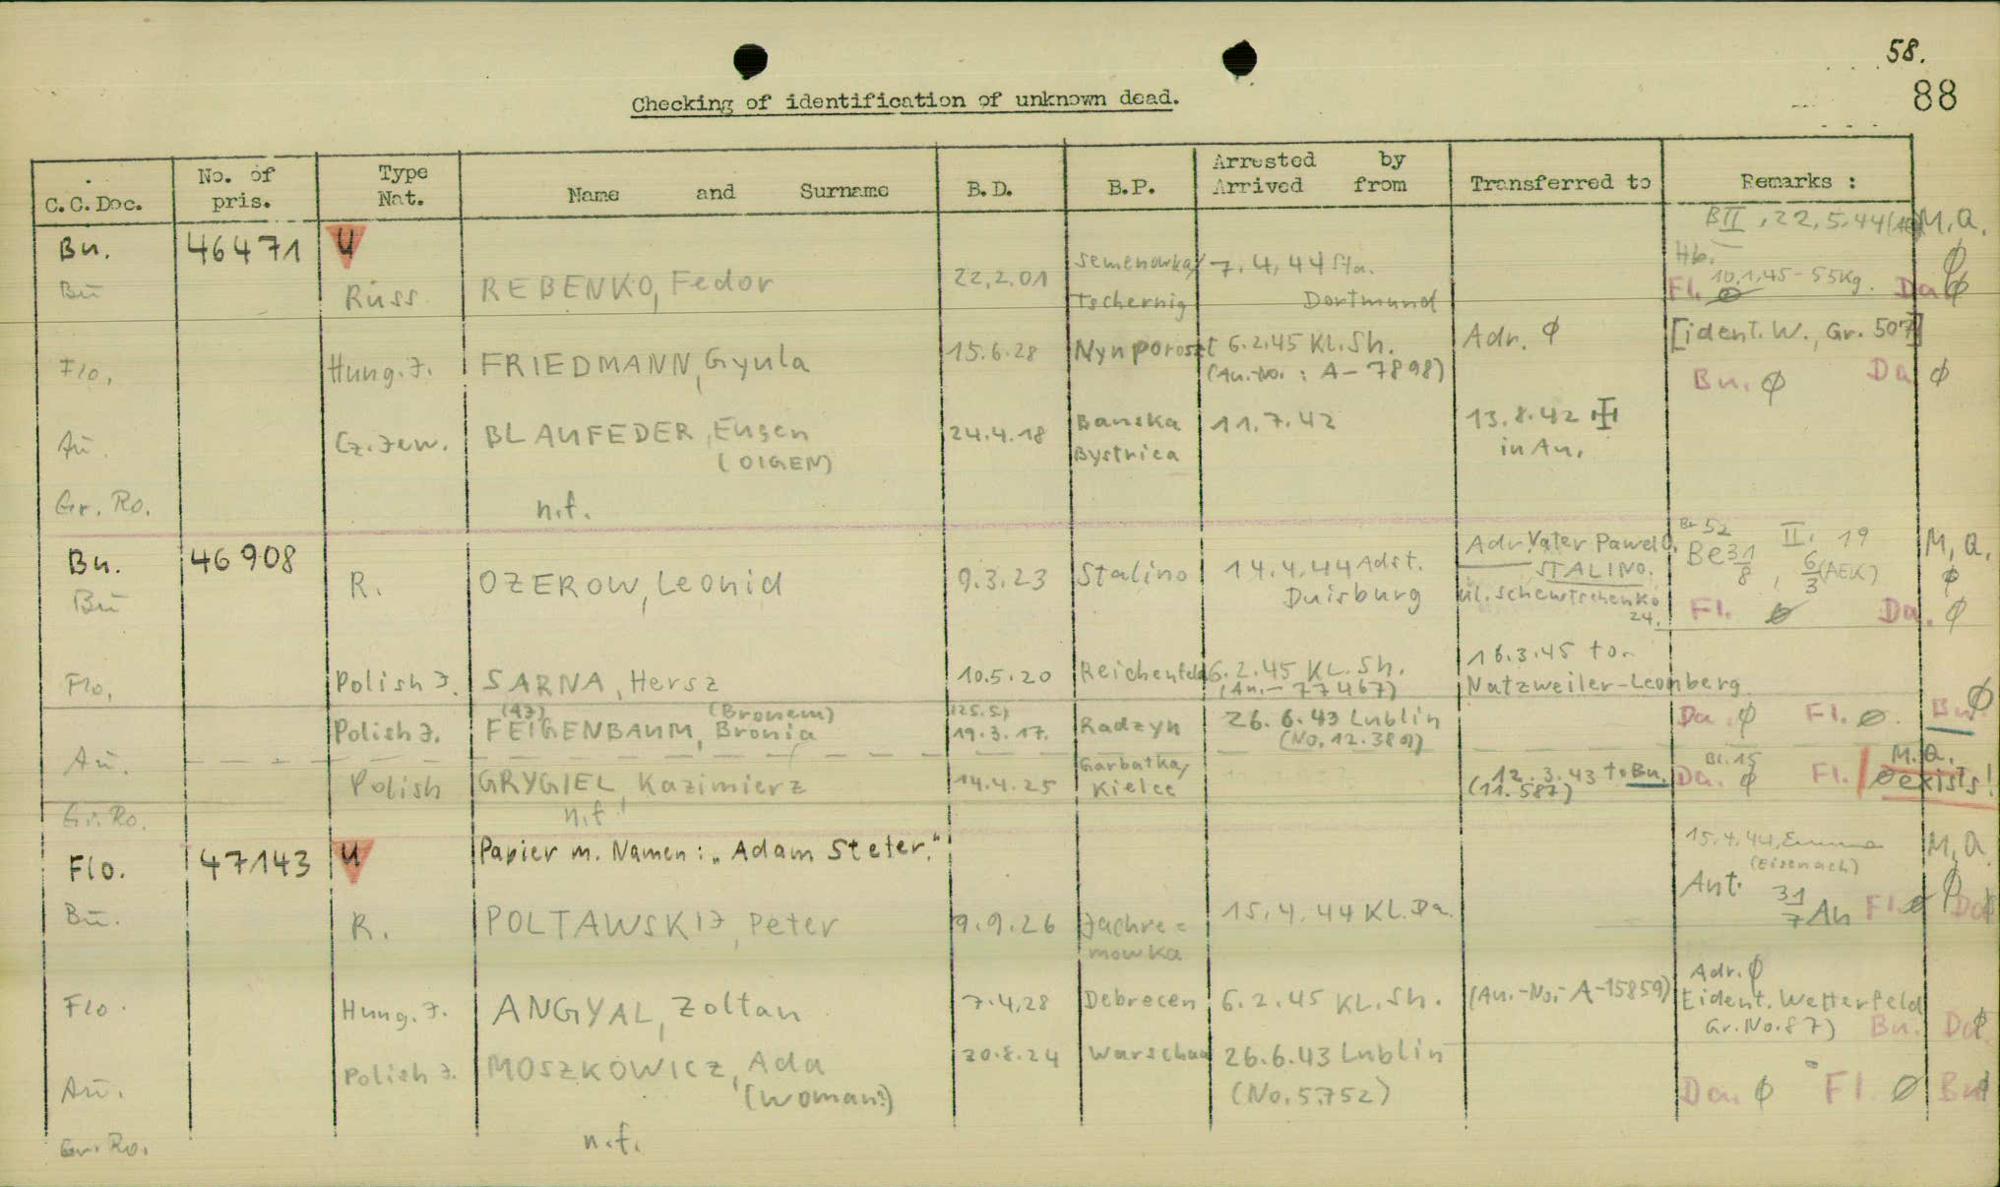 58.
88
Checking of identification of unknown dead.
C.C.Doc. No. of pris. Type Nat. Name and Surname B.D. B.P. Arrested by Arrived from Transferred to Remarks :
BII, 22.5.44 M.A.
Bu. 46471 U
Hb. ϕ
Bu Russ REBENKO, Fedor 22.2.01 Semenowka/ Tschernig 7.4.44 Sta. Dortmund
10.1.45-55Kg.
Fl. ø Da ϕ
Flo. Hung.J. FRIEDMANN, Gyula 15.6.28 Nynporoszt 6.2.45 KL.Sh. Adr. ϕ [ident. W., Gr. 507]
(Au.-No.: A-7898) Bu. ϕ Da ϕ
Au. Cz.Jew. BLAUFEDER, Eugen 24.4.18 Banska Bystrica 11.7.42 13.8.42 in Au.
(OIGEN)
Gr. Ro. n.f.
Bu. 46908 Be 52 II. 19 M.A.
Bu R. OZEROW, Leonid 9.3.23 Stalino 14.4.44 Adst. Duisburg
Adr. Vater Pawel O.
STALINO.
ul. Schewtschenko
24.
Be 31/8, 6/3 (AEK) ϕ
Fl. ø Da. ϕ
Flo. Polish J. SARNA, Hersz 10.5.20 Reichenfeld 6.2.45 KL.Sh. 16.3.45 to
(An.-77467) Natzweiler-Leonberg
(43) (Bronem) (25.5)
Polish J. FEIGENBAUM, Bronia 19.3.17. Radzyn 26.6.43 Lublin Da. ϕ Fl. ø Bu. ϕ
(No. 12.389)
Au.
Polish GRYGIEL, Kazimierz 14.4.25 Garbatka/ Kielce 12.3.43 to Bu. Da. ϕ Fl. øexists!
(11.587) Bl.15 M.A.
Gr.Ro. n.f.
Flo. 47143 U Papier m. Namen: „Adam Steter." 15.4.44, M.A.
(Eisenach)
Bu. R. POLTAWSKIJ, Peter 9.9.26 Jachre= mowka 15.4.44 KL.Da. Ant. 31/7 An Fl. ø ϕ Da ϕ
Adr. ϕ
Flo. Hung.J. ANGYAL, Zoltan 7.4.28 Debrecen 6.2.45 KL.Sh. (An.-No.- A-15859) Eident. Wetterfeld
Gr.No.87) Bu. Da ϕ
Au. Polish J. MOSZKOWICZ, Ada 20.8.24 Warschau 26.6.43 Lublin
(woman?) (No.5752) Da. ϕ Fl. ø Bu ϕ
Gr.Ro. n.f.